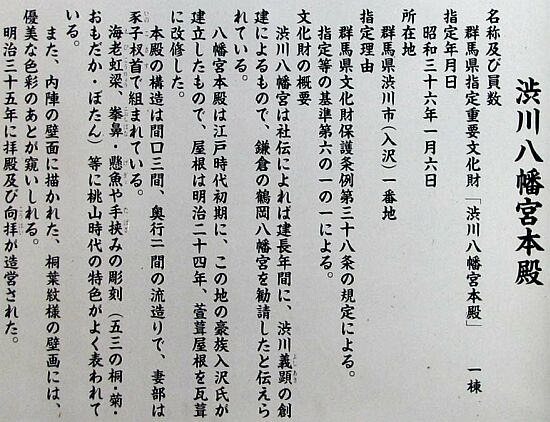 渋川八幡宮本殿
名称及び員数
群馬県指定重要文化財「渋川八幡宮本殿」 一棟
指定年月日
昭和三十六年一月六日
所在地
群馬県渋川市(入沢)一番地
指定理由
群馬県文化財保護条例第三十八条の規定による。
指定等の基準第六の一の一による。
文化財の概要
渋川八幡宮は社伝によれば建長年間に、渋川義顕の創
建によるもので、鎌倉の鶴岡八幡宮を勧請したと伝えら
れている。
八幡宮本殿は江戸時代初期に、この地の豪族入沢氏が
建立したもので、屋根は明治二十四年、萱葺屋根を瓦葺
に改修した。
本殿の構造は間口三間、奥行二間の流造りで、妻部は
豕子扠首で組まれている。
海老虹梁、拳鼻・懸魚や手挟みの彫刻(五三の桐・菊・
おもだか・ぼたん)等に桃山時代の特色がよく表われて
いる。
また、内陣の壁面に描かれた、桐葉紋様の壁画には、
優美な色彩のあとが窺いしれる。
明治三十五年に拝殿及び向拝が造営された。